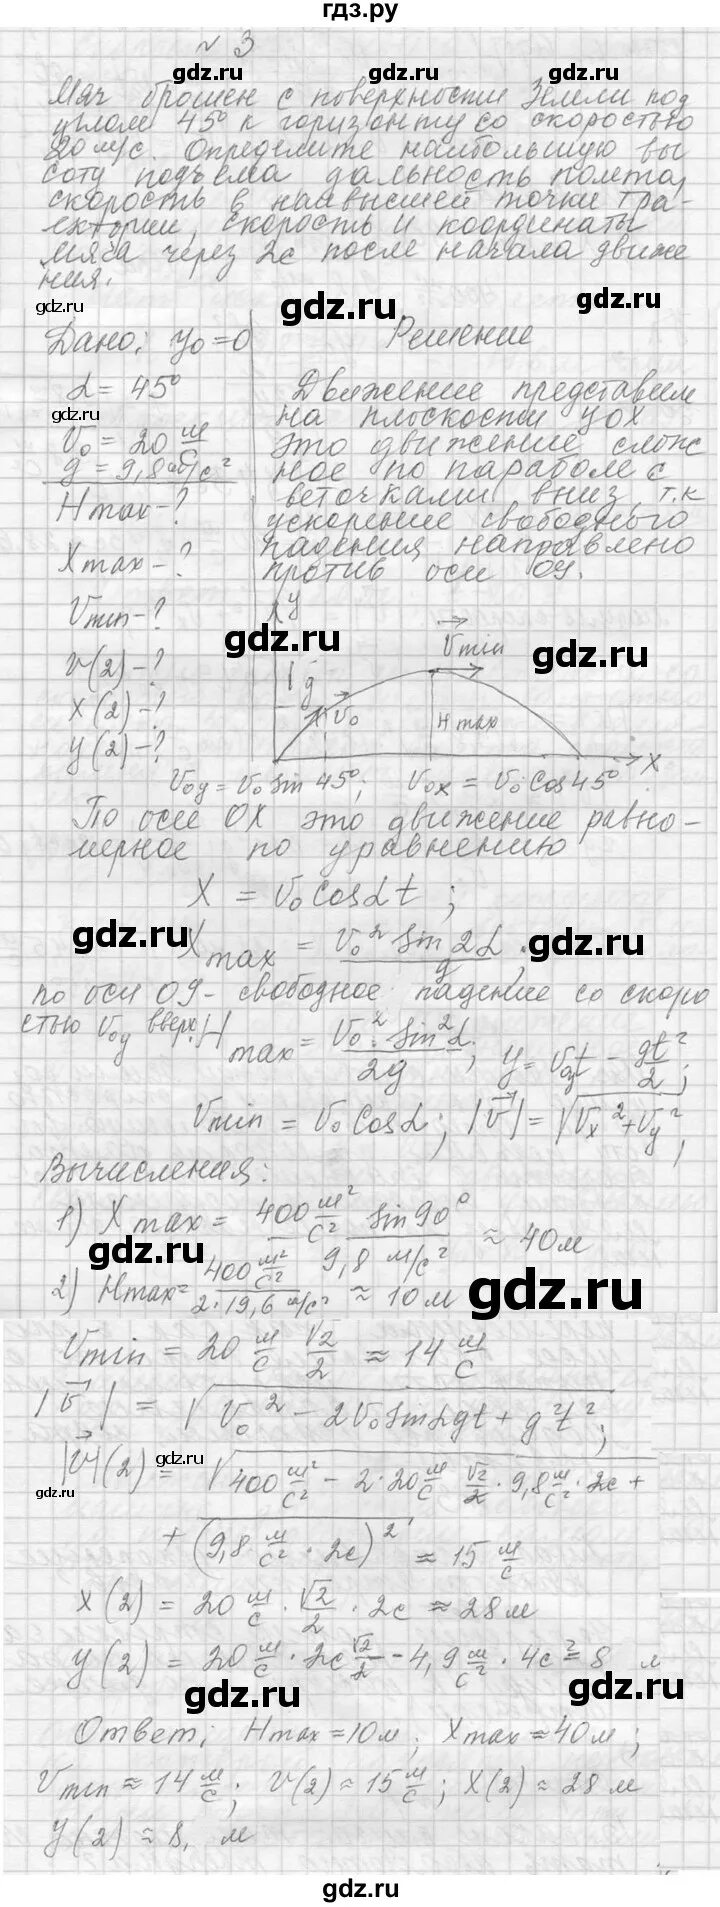 гдз.ру
№ 3
Мяч брошен с поверхности Земли под
углом 45° к горизонту со скоростью
20 м/с. Определите наибольшую вы
соту подъема дальность полета,
скорость в наивысшей точки тра-
ектории, скорость и координаты
мяча через 2с после начала движе
ния.
gdz.ru gdz.ru gdz.ru
Дано: y₀=0 Решение
α = 45° Движение представим
gdz.ru на плоскости yox
V₀ = 20 м/с это движение слож
g = 9,8 м/с² ное по параболе с
Hmax-? веточками вниз, т.к
ускорение свободного
Xmax-? падения направлено
против оси oy.
Vmin-? y
gdz.ru Vmin gdz.ru
v(2)-? g
x(2)-? v₀ Hmax
y(2)-? X
V₀y = V₀ sin 45°; V₀x = V₀ cos 45°
По осе OX это движение равно-
мерное по уравнению
X = V₀ cosα t ;
gdz.ru Xmax = V₀² sin 2α / g ; gdz.ru
по оси OY- свободное падение со скоро
стью V₀y вверх. Hmax = V₀² sin²α / 2g ; y = V₀y t - gt²/2 ;
Vmin = V₀ cosα ; |v⃗| = √(Vx² + Vy²) ;
Вычисления:
1) Xmax = 400 м²/с² sin 90° / 9,8 м/с² ≈ 40м
gdz.ru
2) Hmax = 400 м²/с² / 2·19,6 м/с² ≈ 10м gdz.ru
Vmin = 20 м/с √2/2 ≈ 14 м/с
|v⃗| = √(V₀² - 2V₀ sinα gt + g²t²) ;
|v⃗|(2) = √(400 м²/с² - 2·20 м/с √2/2 · 9,8 м/с² · 2с +
gdz.ru gdz.ru
+ (9,8 м/с² · 2с)²) ≈ 15 м/с
x(2) = 20 м/с · √2/2 · 2с ≈ 28м
y(2) = 20 м/с · 2с √2/2 - 4,9 м/с² · 4с² = 8 м
gdz.ru gdz.ru
Ответ; Hmax = 10м ; Xmax ≈ 40м ;
Vmin ≈ 14 м/с ; V(2) ≈ 15 м/с ; X(2) ≈ 28 м
y(2) ≈ 8, м
gdz.ru